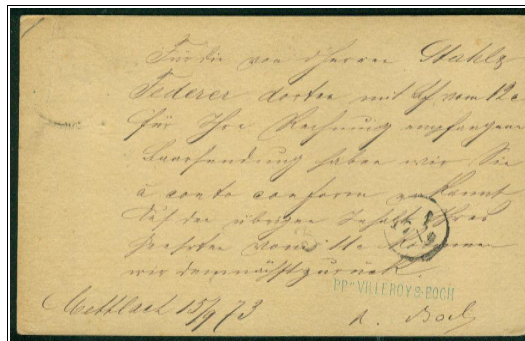 Für die von Herren Stahl &
Federer dorten mit Bf vom 12 c
für Ihre Rechnung empfangene
Baarsendung haben wir Sie
à conto conform erkannt
Auf den übrigen Inhalt Ihres
Geehrten vom 11ten kommen
wir demnächst zurück.
PPⁿ VILLEROY & BOCH
Mettlach 15/9 73
Boch